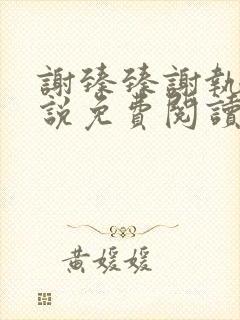 謝臻臻謝執
說免費閱讀
黃媛媛